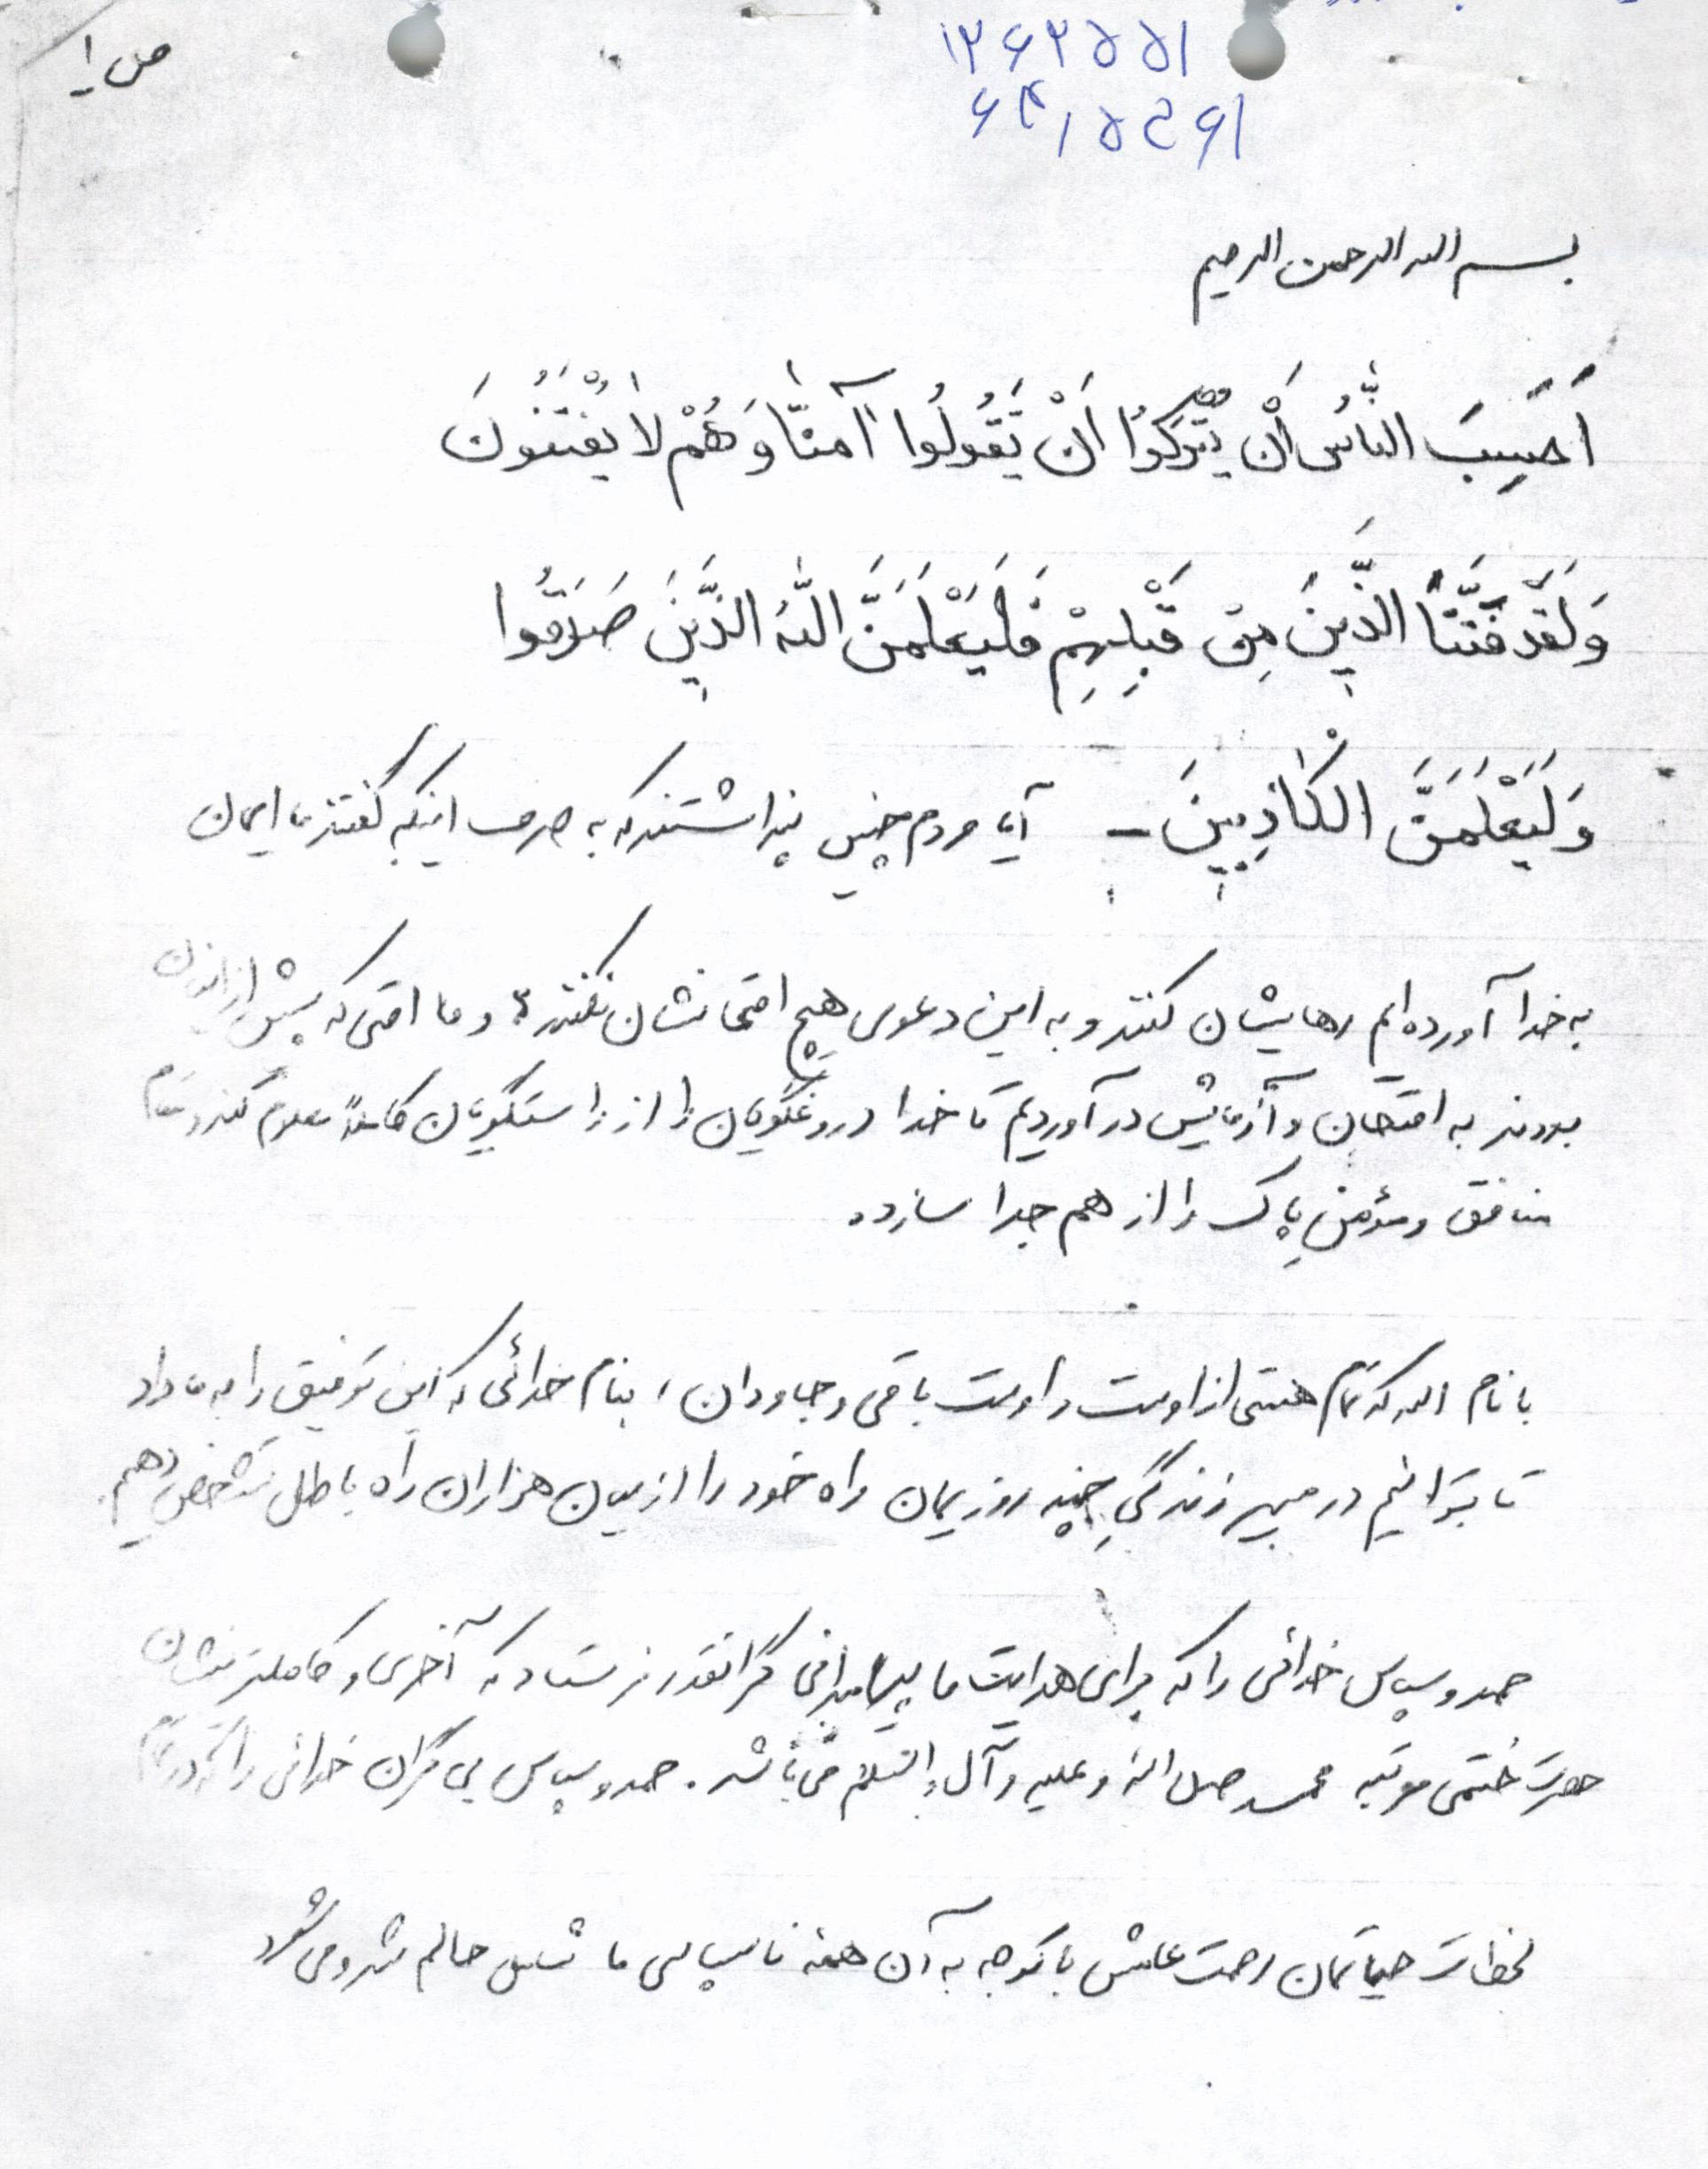 ص ۱
۱۳۶۲۵۵۱
بسم الله الرحمن الرحیم
اَحَسِبَ النّاسُ اَنْ یُتْرَکُوا اَنْ یَقُولُوا آمَنّا وَ هُمْ لا یُفْتَنُونَ
وَلَقَدْ فَتَنَّا الَّذینَ مِن قَبْلِهِمْ فَلَیَعْلَمَنَّ اللّهُ الَّذینَ صَدَقُوا
وَ لَیَعْلَمَنَّ الْکاذِبینَ - آیا مردم چنین پنداشتند که به صرف اینکه گفتند ما ایمان
به خدا آورده ایم رهایشان کنند و به این دعوی هیچ امتحانشان نکنند؟ و ما امتی که پیش از اینان
بودند به امتحان و آزمایش در آوردیم تا خدا دروغگویان را از راستگویان کاملاً معلوم کند و مقام
منافق و مؤمن پاک را از هم جدا سازد.
با نام الله که تمام هستی از اوست و اوست باقی و جاودان، بنام خدائی که این توفیق را به ما داد
تا بتوانیم در مسیر زندگیِ چند روزیمان راه خود را از میان هزاران راه باطل تشخیص دهیم.
حمد و سپاس خدائی را که برای هدایت ما پیامبرانی گرانقدر فرستاد که آخری و کاملترینشان
حضرت ختمی مرتبه محمد صلی الله و علیه و آل و السّلام می باشد. حمد و سپاس بی کران خدائی را که در تمام
لحظات حیاتمان رحمت عامش با توجه به آن همه ناسپاسی ما شامل حالم شد و می شود